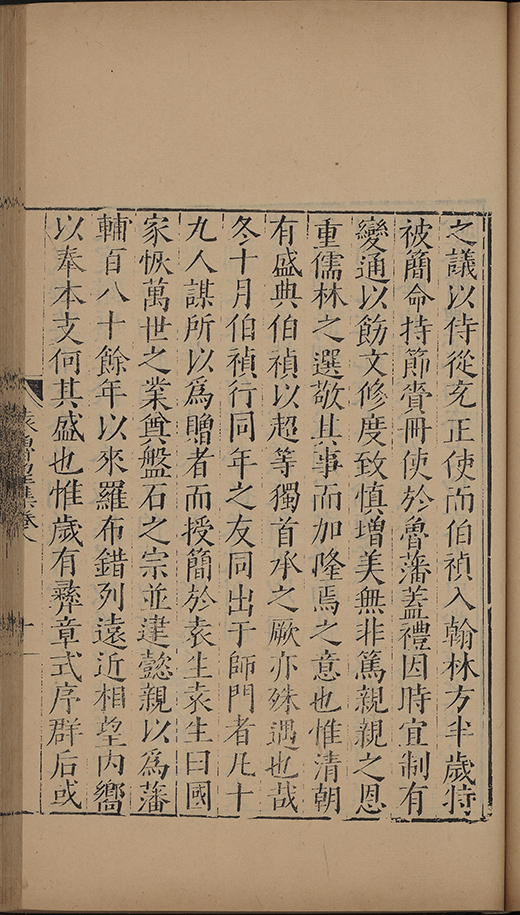 之議以侍從充正使而伯禎入翰林方半歲特
被簡命持節賫冊使於魯藩蓋禮因時宜制有
變通以飭文修度致慎增美無非篤親親之恩
重儒林之選敬其事而加隆焉之意也惟清朝
有盛典伯禎以超等獨首承之厥亦殊遇也哉
冬十月伯禎行同年之友同出于師門者凡十
九人謀所以爲贈者而授簡於袁生袁生曰國
家恢萬世之業奠盤石之宗並建懿親以爲藩
輔百八十餘年以來羅布錯列遠近相望内嚮
以奉本支何其盛也惟歲有彝章式序群后或
袁魯望集卷八
十一